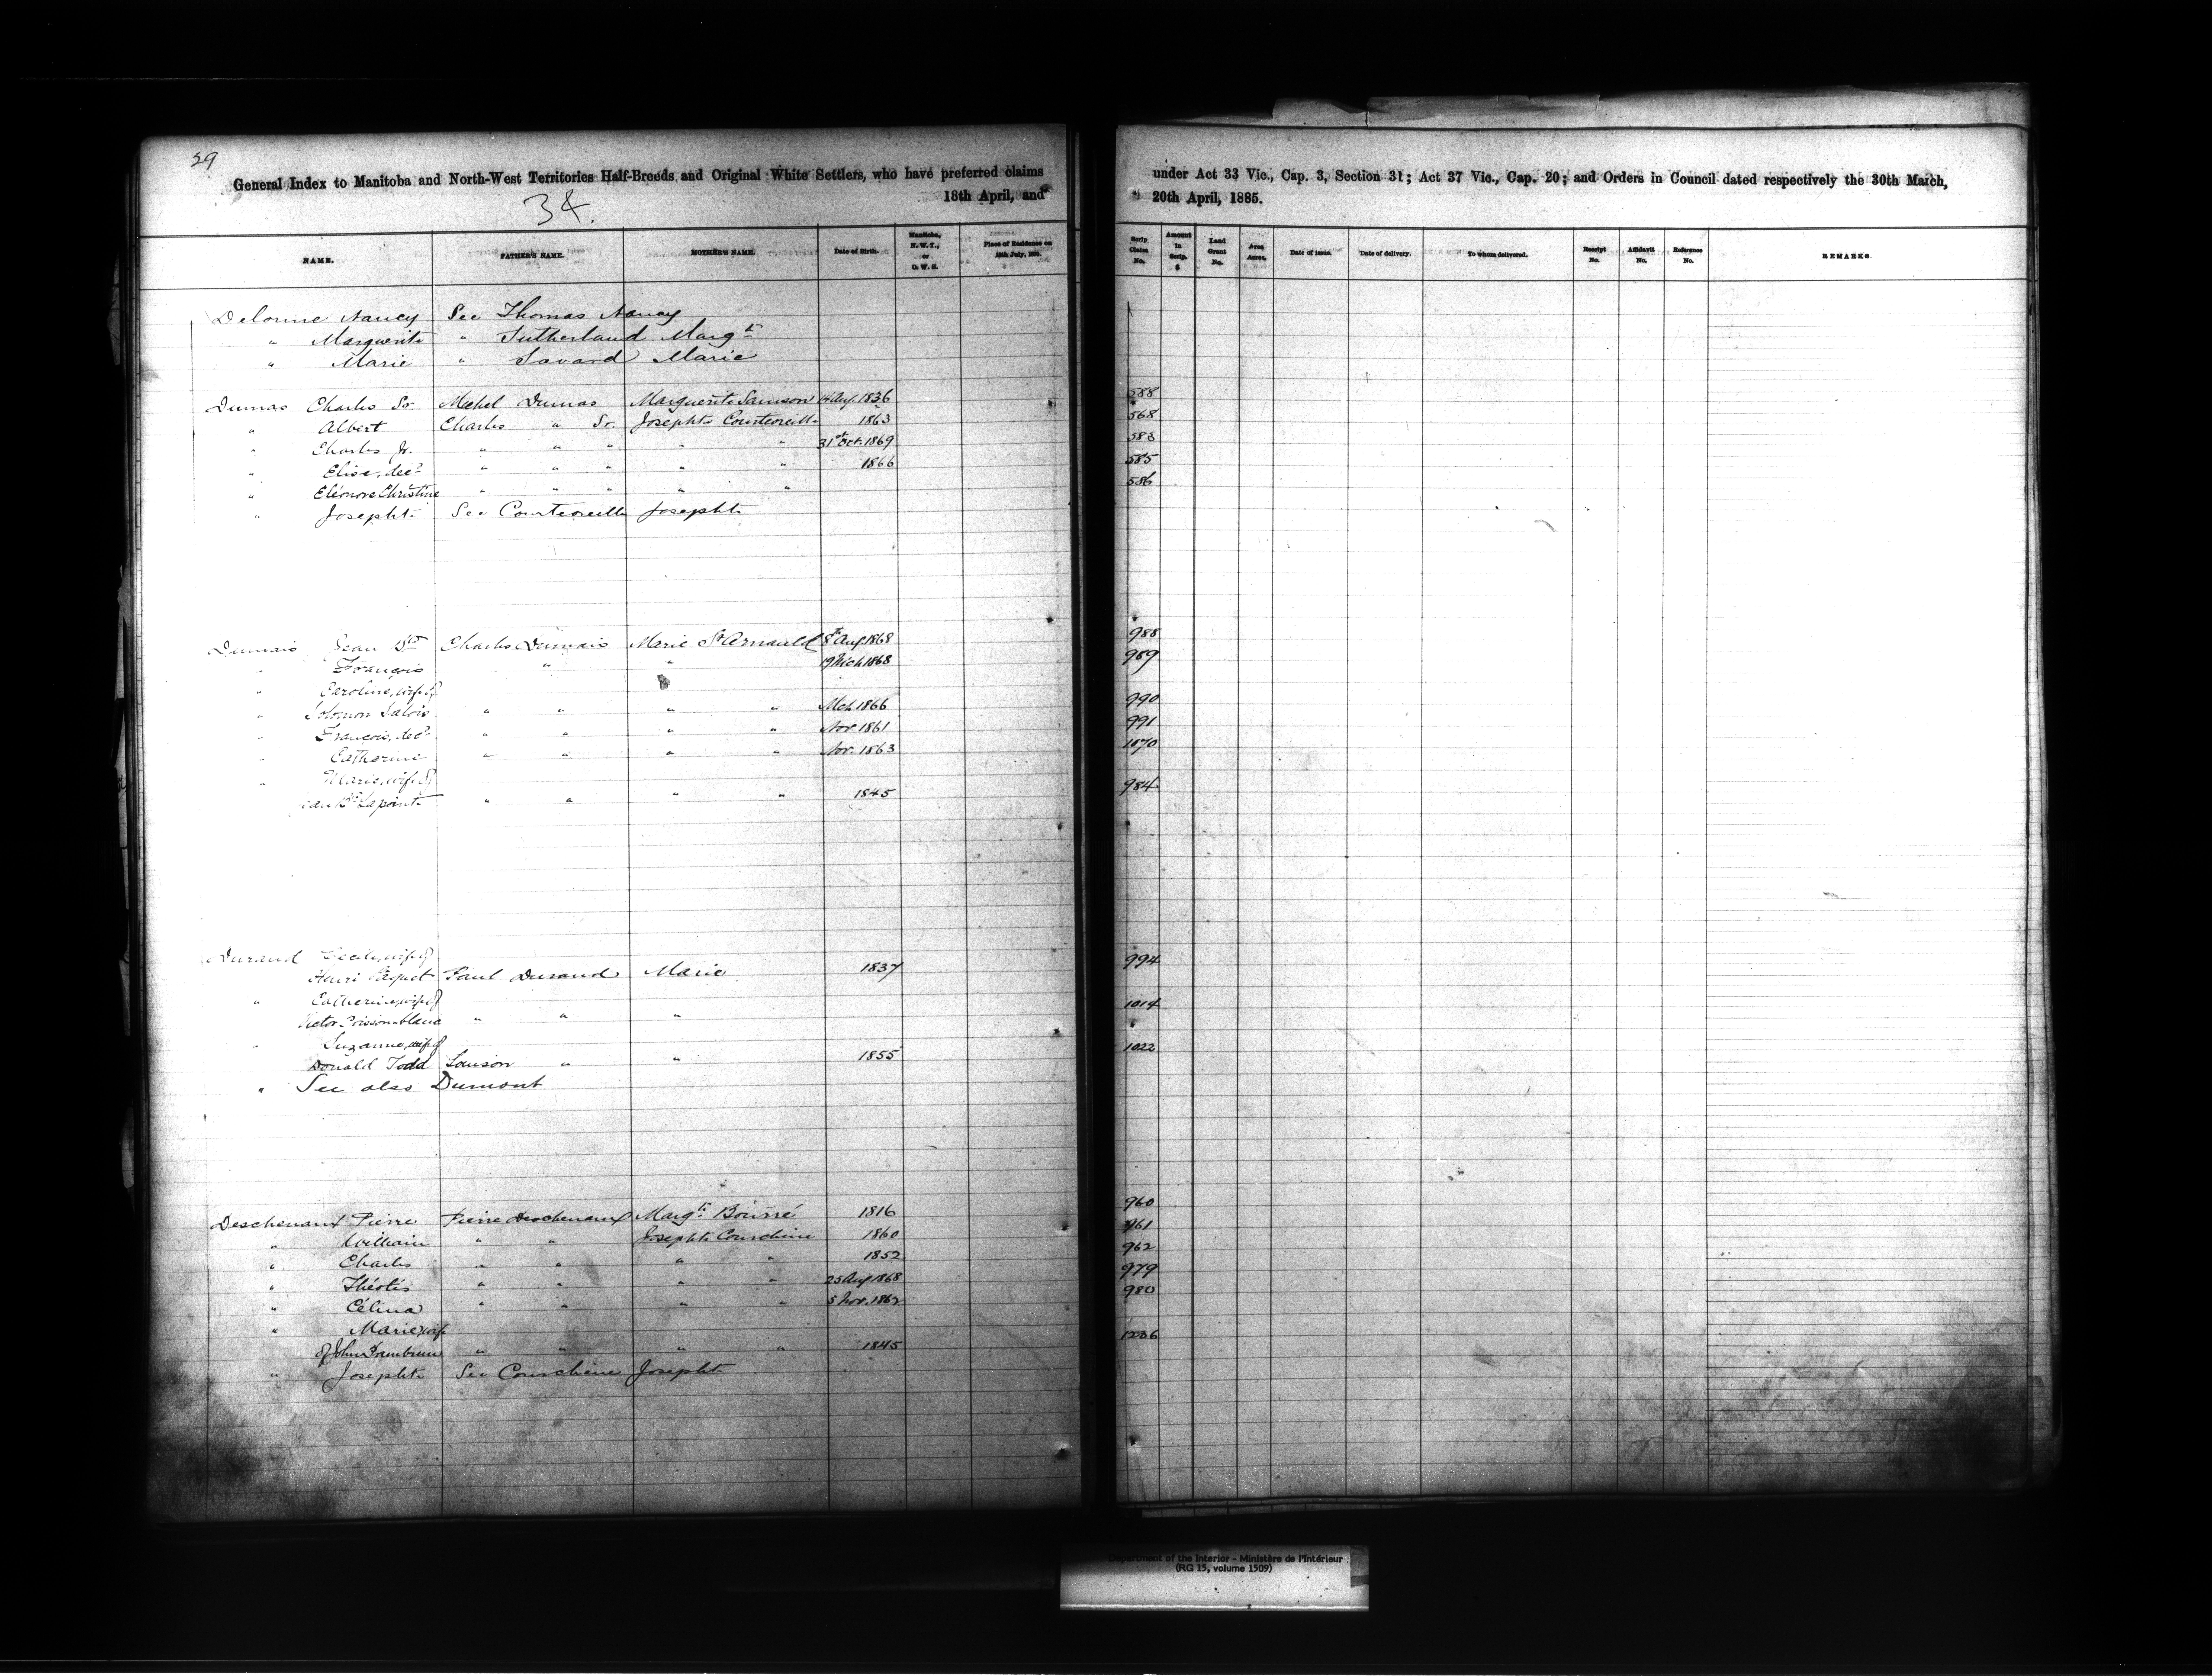 39
General Index to Manitoba and North-West Territories Half-Breeds and Original White Settlers, who have preferred claims under Act 33 Vic., Cap. 3, Section 31; Act 37 Vic., Cap. 20; and Orders in Council dated respectively the 30th March,
34. 18th April, and 20th April, 1885.
NAME. FATHER'S NAME. MOTHER'S NAME. Date of Birth. Manitoba, N.W.T., or O.W.S. Place of Residence on 15th July, 1870. Scrip Claim No. Amount in Scrip. $ Land Grant No. Area Acres. Date of issue. Date of delivery. To whom delivered. Receipt No. Affidavit No. Reference No. REMARKS.
Delorme Nancy See Thomas Nancy
" Marguerite " Sutherland Margte
" Marie " Savard Marie
Dumas Charles Sr. Michel Dumas Marguerite Samson 14 Aug 1836 588
" Albert Charles " Sr. Josephte Courtoreille 1863 568
" Charles Jr. " " " " " 31st Oct. 1869 583
" Elise, decd " " " " " 1866 585
" Eléonore Christine " " " " " 586
" Josephte See Courtoreille Josephte
Dumais Jean Bte Charles Dumais Marie St Arnauld 8th Aug 1868 988
" François " " 19 Mch 1868 989
" Caroline, wife of
" Solomon Salois " " " " Mch 1866 990
" François, decd " " " " Nov 1861 991
" Catherine " " " " Nov. 1863 1070
" Marie, wife of
Jean Bte Lapointe " " " " 1845 984
Durand Cécile, wife of
Henri Paquet Paul Durand Marie 1837 994
" Catherine, wife of
Victor Poisson-blanc " " " 1014
" Suzanne, wife of
Donald Todd Louison " " 1855 1022
" See also Dumont
Deschenaux Pierre Pierre Deschenaux Margte Bourré 1816 960
" William " " Josephte Courchène 1860 961
" Charles " " " " 1852 962
" Théotis " " " " 25 Aug 1868 979
" Célina " " " " 5 Nov. 1862 980
" Marie, wife
of John " " " " 1845 1236
" Josephte See Courchène Josephte
Department of the Interior - Ministère de l'Intérieur
(RG 15, volume 1509)